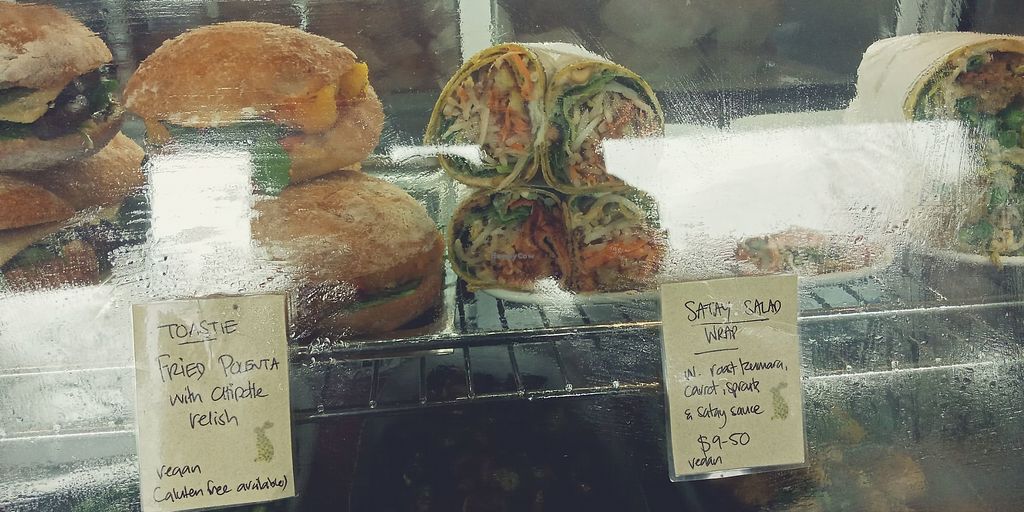 TOASTIE
FRIED POLENTA
with Chipotle
relish
vegan
(Gluten free available)
SATAY SALAD
WRAP
w. roast kumara,
carrot, sprouts
& satay sauce
$9-50
vegan
HappyCow